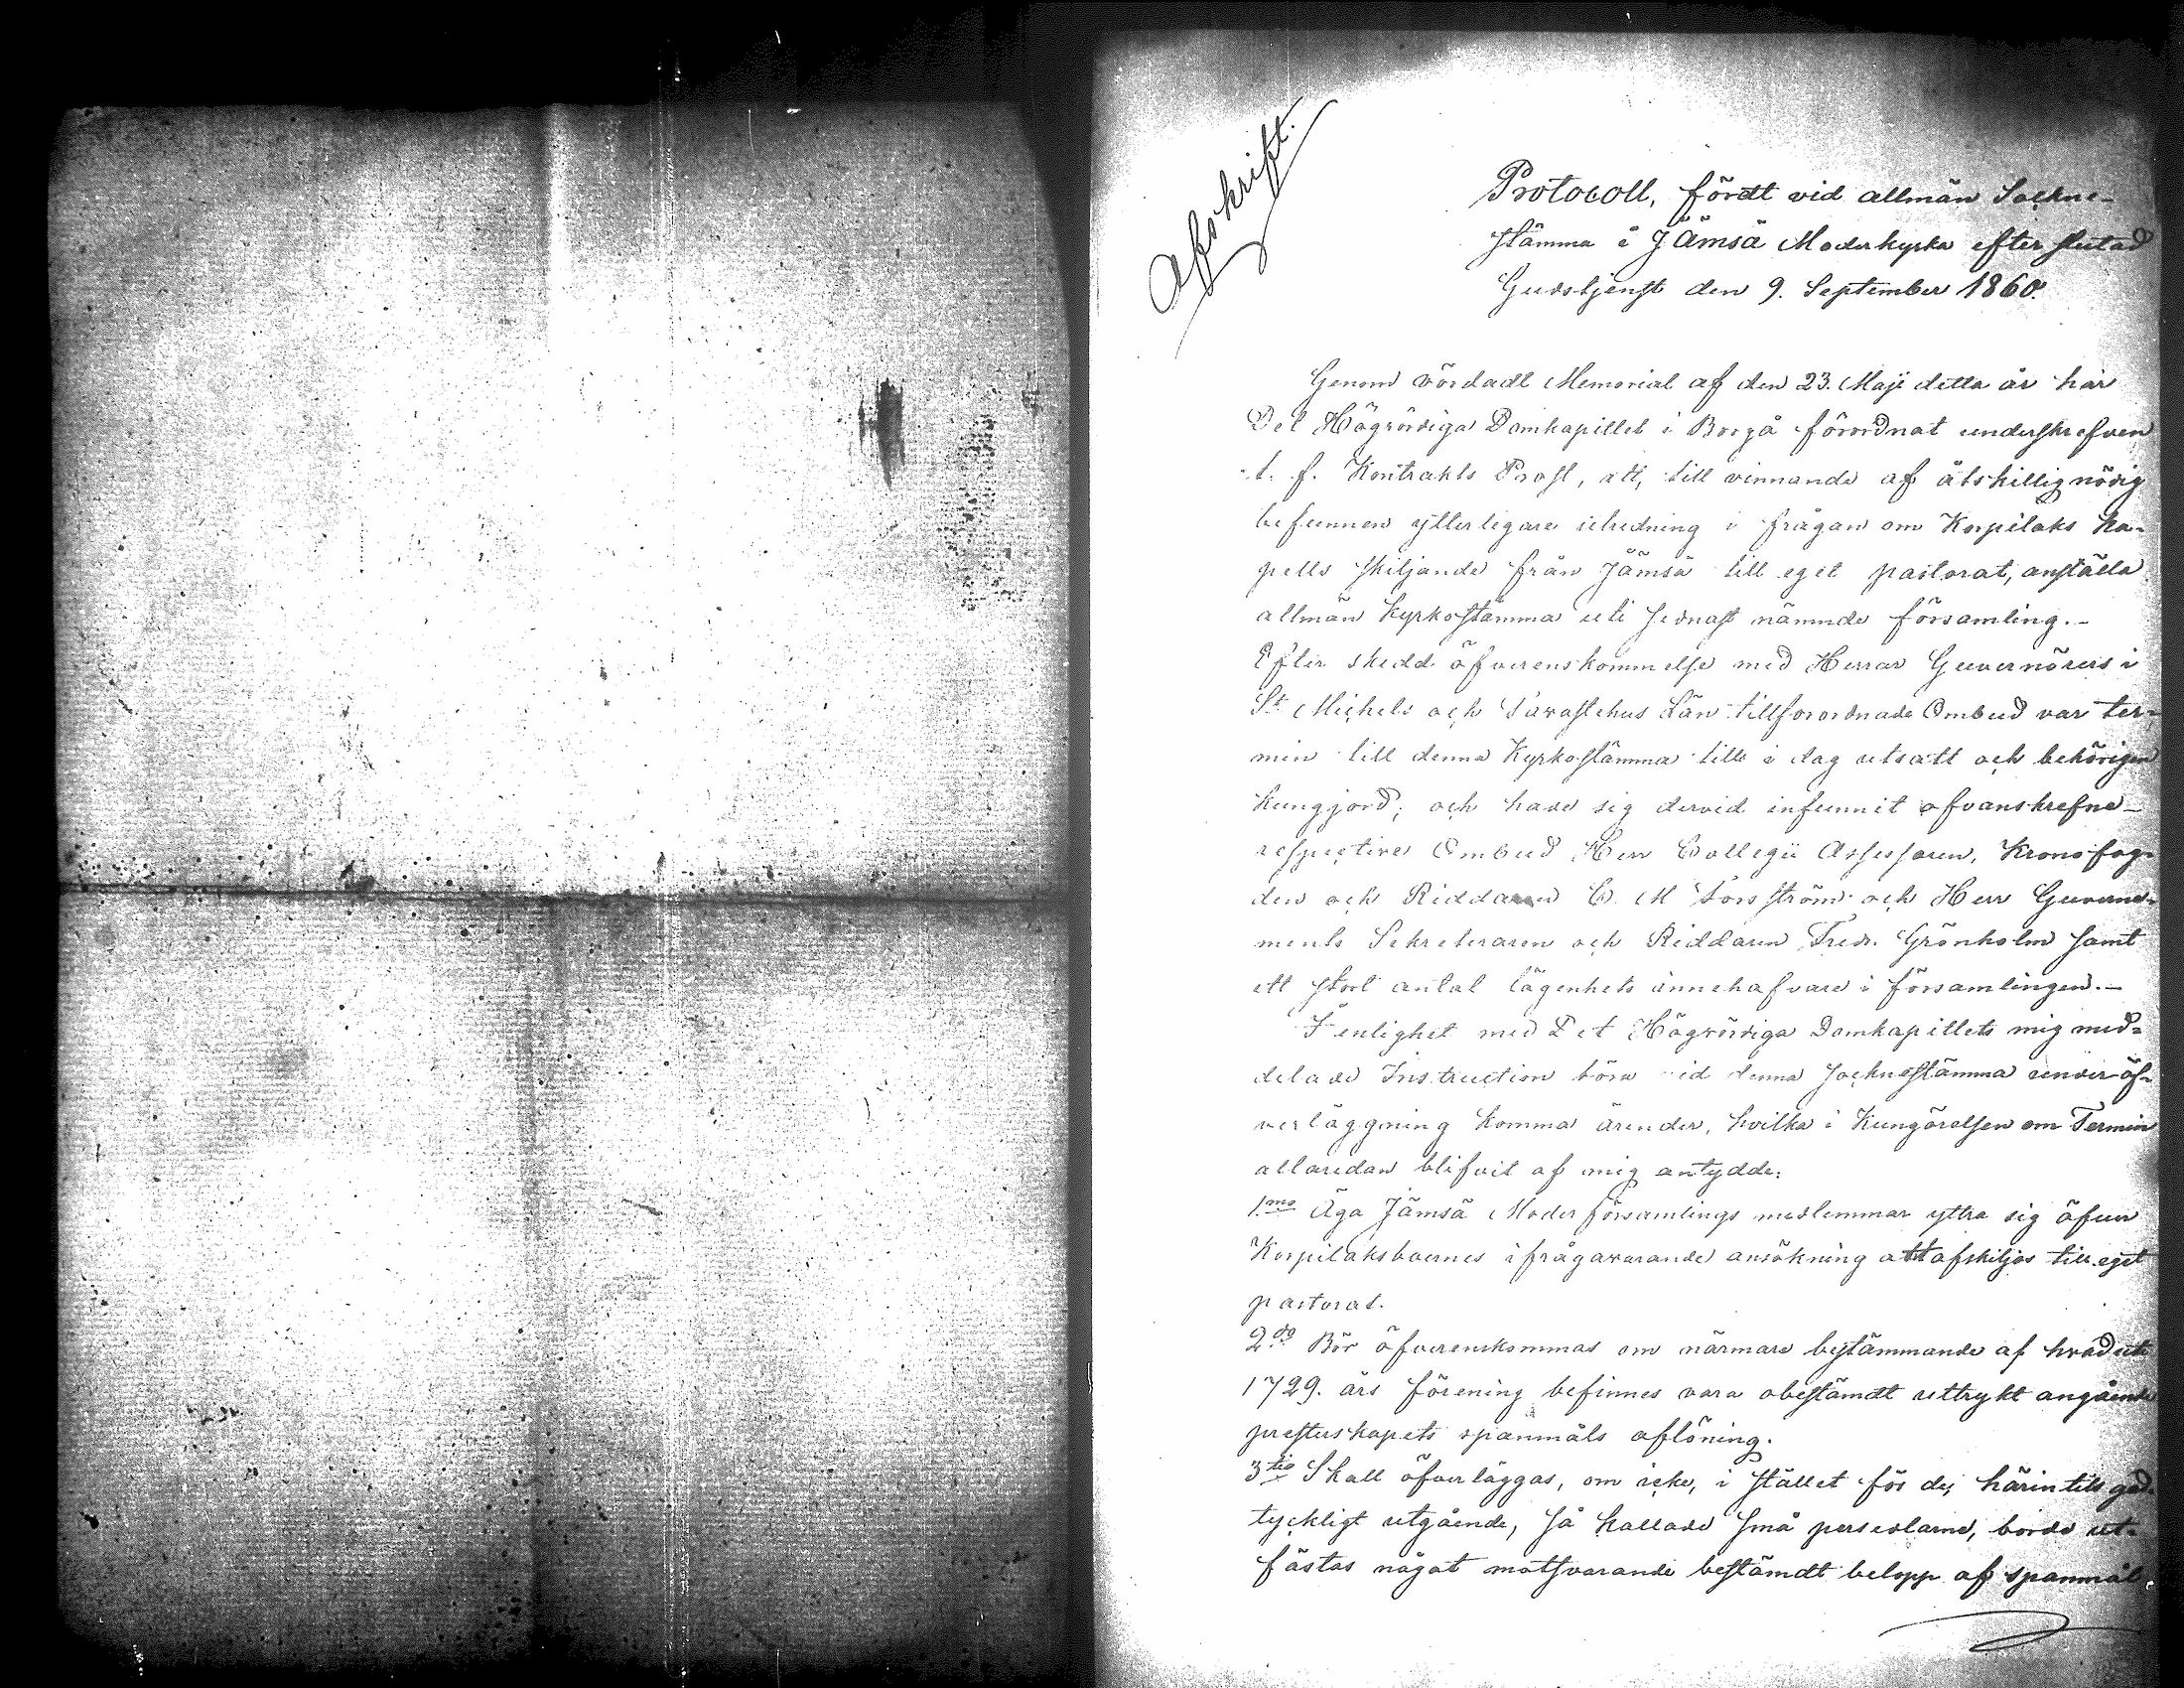 Afskrift.
Protocoll, fördt vid allmän Sockne-
stämma i Jämsä Moderkyrka efter slutad
Gudstjenst den 9. September 1860.
Genom vördadt Memorial af den 23. Maji detta år har
Det Högvördiga Domkapitlet i Borgå förordnat underskrefven
t. f. Kontrakts Prost, att, till vinnande af åtskillig nödig
befunnen ytterligare utredning i frågan om Korpilaks ka-
pells skiljande från Jämsä till eget pastorat, anställa
allmän Kyrkostämma uti sednast nämnde församling.-
Efter skedd öfverenskommelse med Herrar Guvernörers i
St Michels och Tavastehus Län tillförordnade Ombud var ter-
min till denna Kyrkostämma till i dag utsatt och behörigen
kungjord; och hade sig dervid infunnit ofvanskrefne-
respective Ombud Herr Collegii Assessoren, Kronofog-
den och Riddaren C. M Forsström och Herr Guverne-
ments Sekreteraren och Riddaren Fredr. Grönholm samt
ett stort antal lägenhets innehafvare i församlingen.-
I enlighet med Det Högvördiga Domkapitlets mig med-
delade Instruction böra vid denna Socknestämma under öf-
verläggning komma ärender, hvilka i Kungörelsen om Termin
allaredan blifvit af mig antydde:
1mo Äga Jämsä Moderförsamlings medlemmar yttra sig öfver
Korpilaksboernes ifrågavarande ansökning att afskiljas till eget
pastorat.
2do Bör öfverenskommas om närmare bestämmande af hvad uti
1729. års förening befinnes vara obestämdt uttrykt angående
presterskapets spanmåls aflöning.
3tio Skall öfverläggas, om icke, i stället för de, härintills god-
tyckligt utgående, så kallade små persedlarne, borde ut-
fästas något motsvarande bestämdt belopp af spanmål